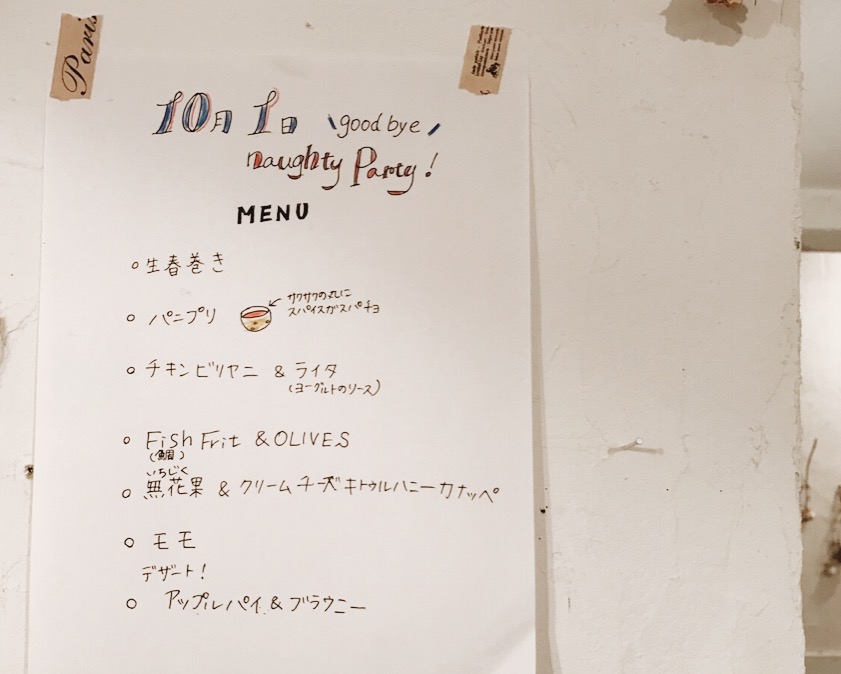 Paris
10月1日 \good bye/
naughty Party!
MENU
○生春巻き
サクサクの丸に
○ パニプリ
スパイスガスパチョ
○ チキンビリヤニ & ライタ
(ヨーグルトのソース)
○ Fish Frit & OLIVES
(鯛)
いちじく
○ 無花果 & クリームチーズキトゥルハニーカナッペ
○ モモ
デザート!
○ アップルパイ & ブラウニー